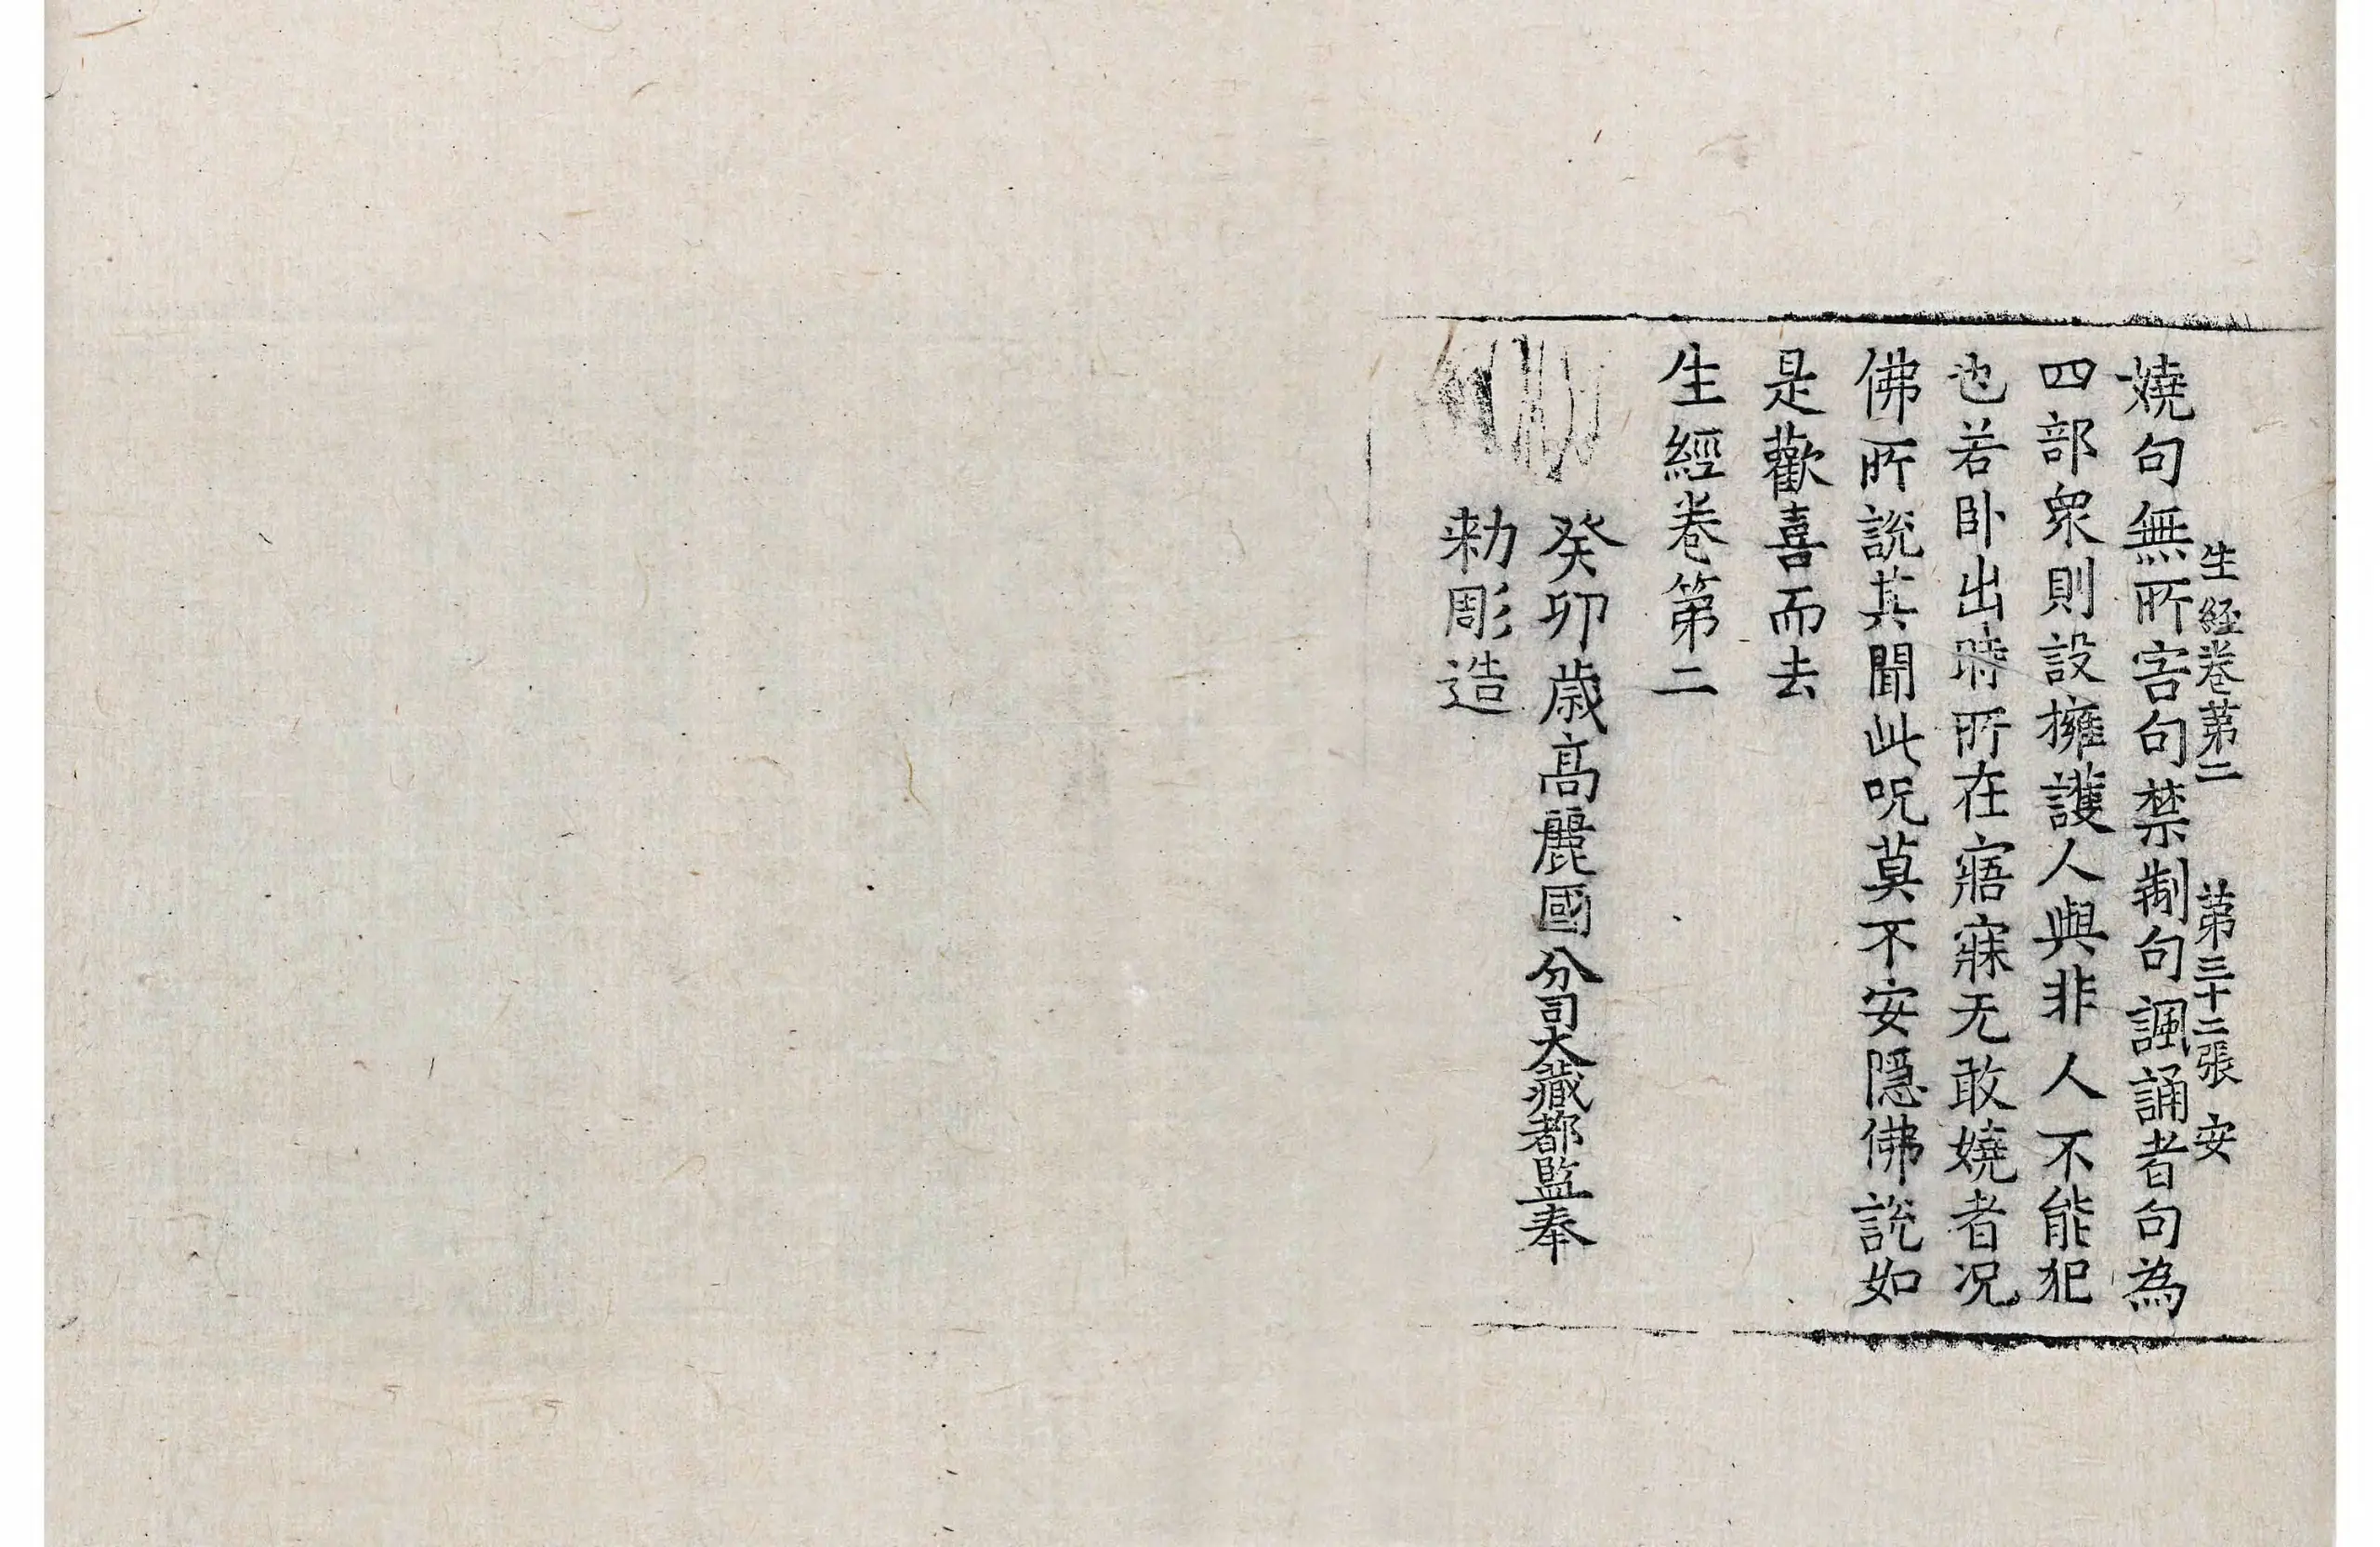 生経卷第二 第三十二張 安
嬈句無所害句禁制句諷誦者句為
四部衆則設擁護人與非人不能犯
也若卧出時所在寤寐无敢嬈者况
佛所說其聞此呪莫不安隱佛說如
是歡喜而去
生經卷第二
癸卯歲高麗國分司大藏都監奉
勅彫造